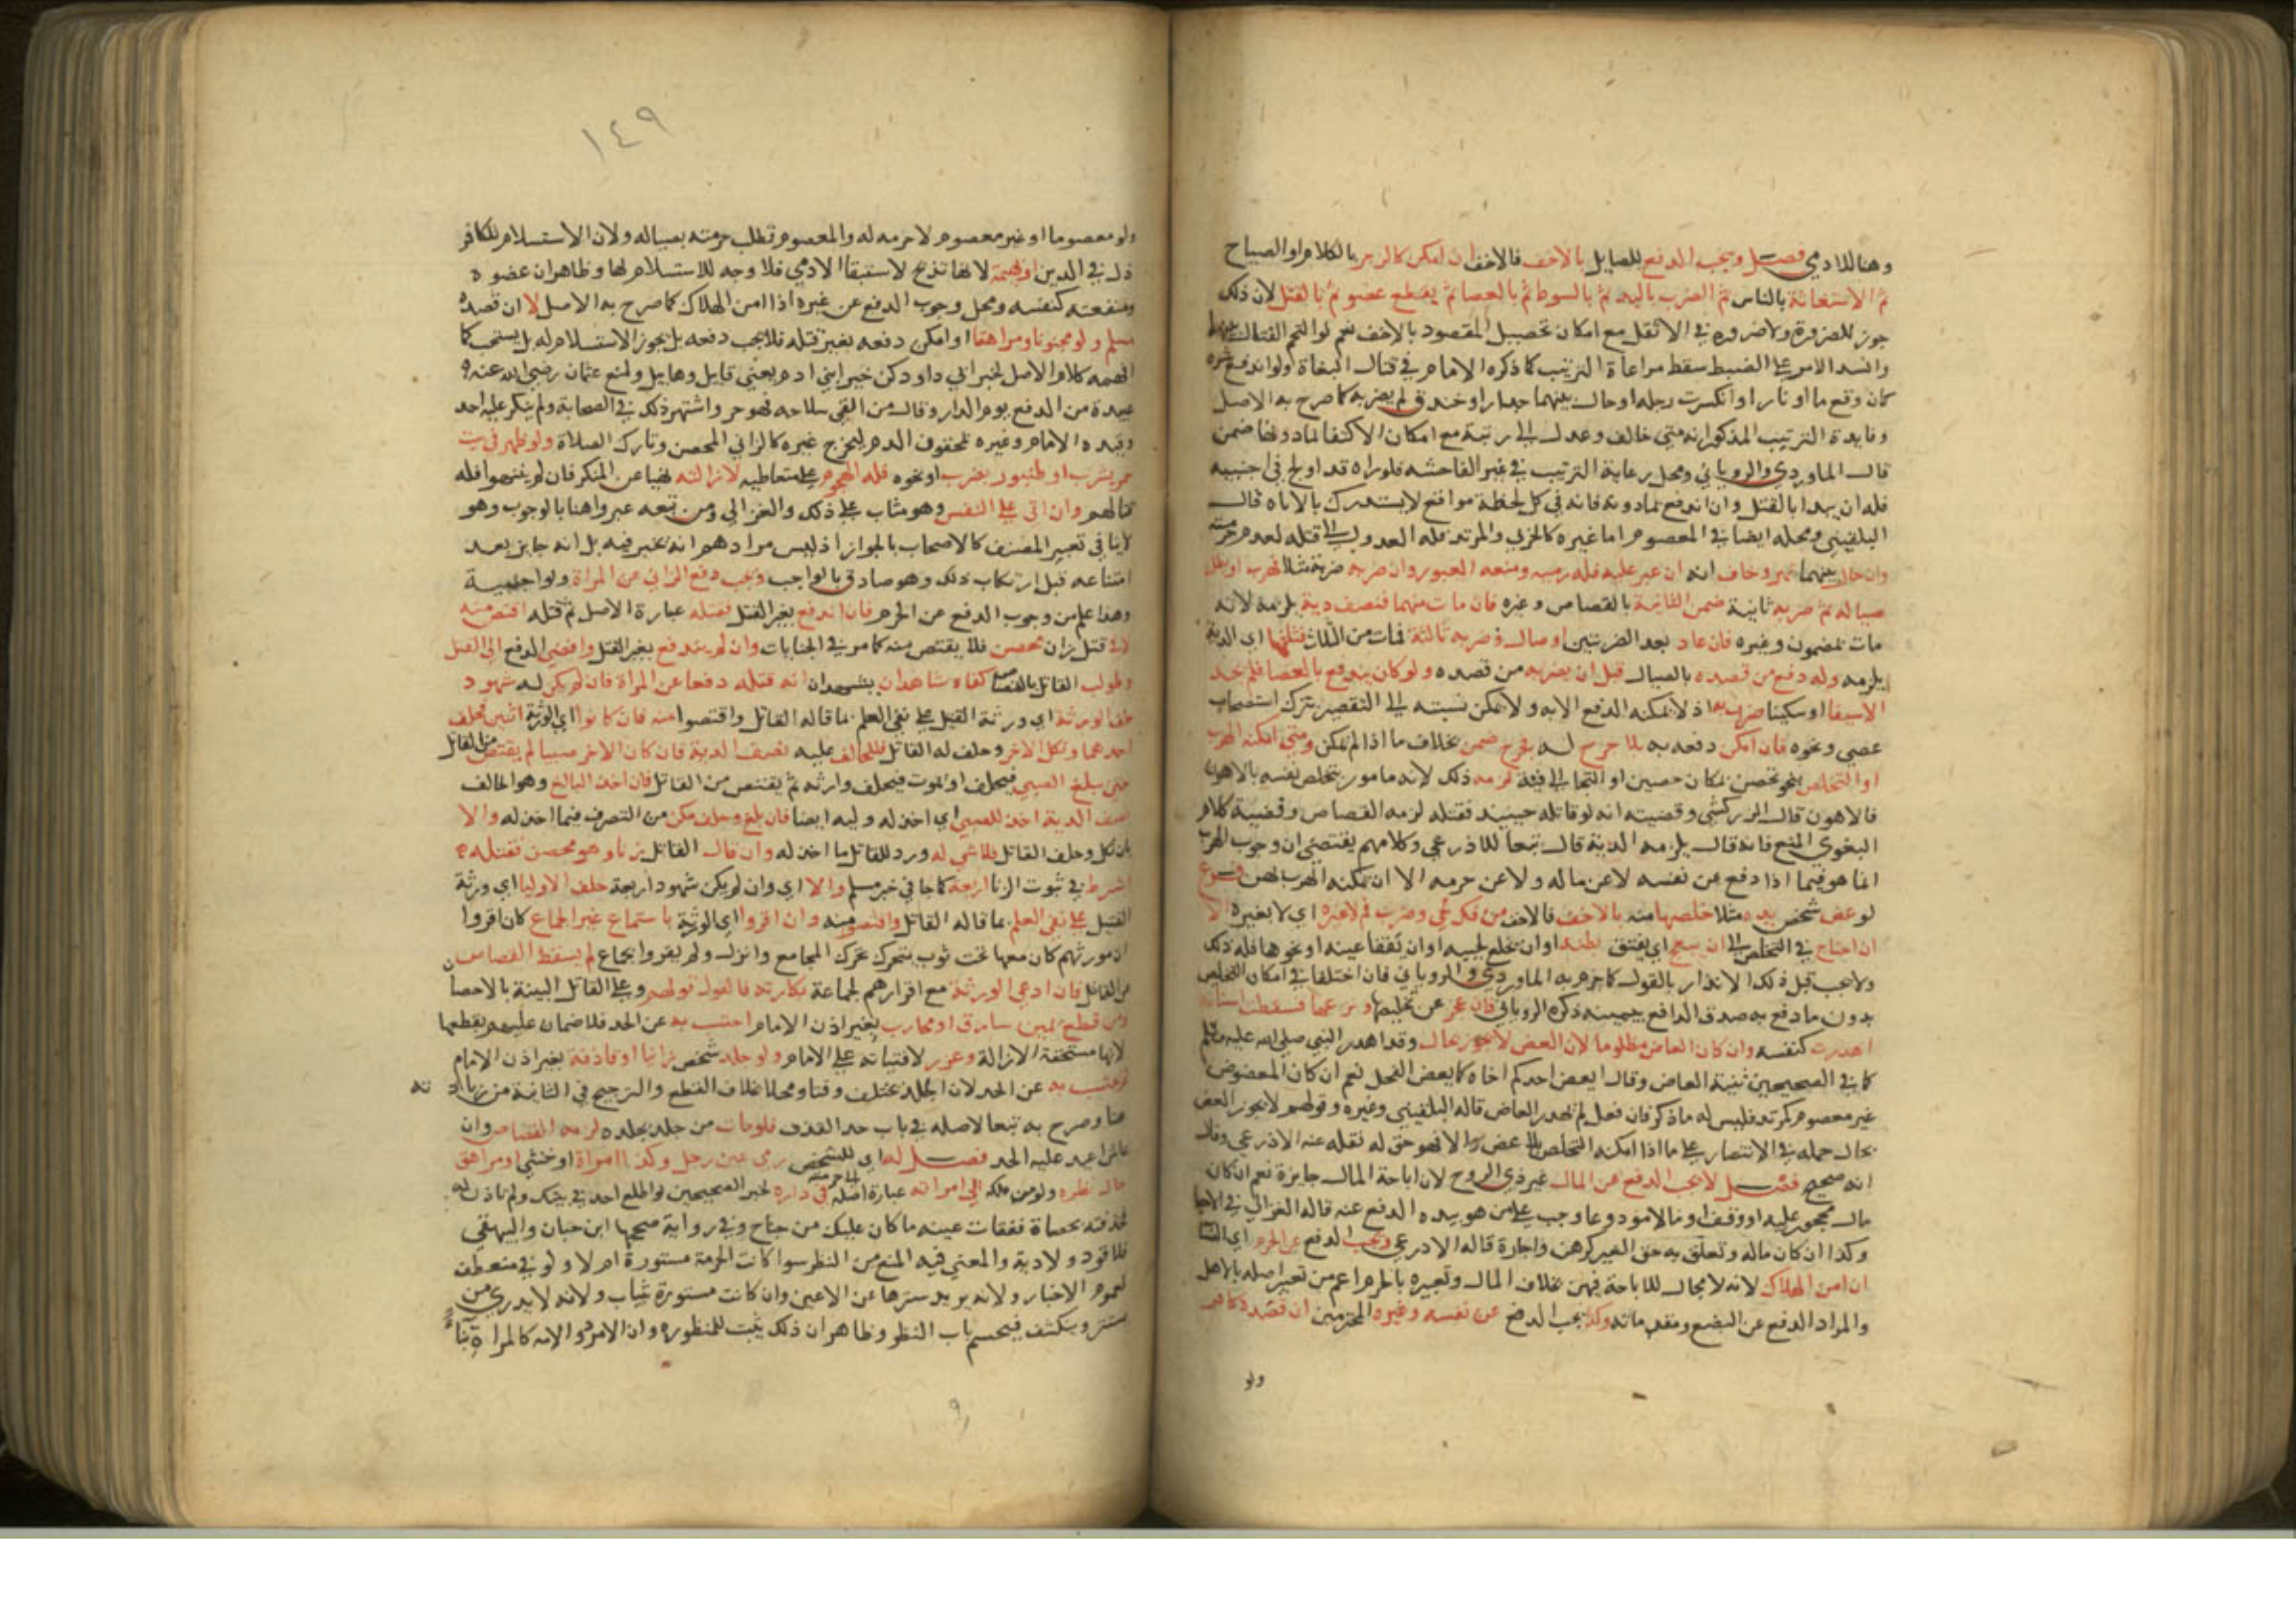 وهنا للادمي فصل ويجب الدفع للصايل بالاخف فالاخف ان امكن كالزجر بالكلام او الصياح
ثم الاستغاثة بالناس ثم الضرب باليد ثم بالسوط ثم بالعصا ثم بقطع عضو ثم بالقتل لان ذلك
جوز للضرورة ولا ضرورة في الاثقل مع امكان تحصيل المقصود بالاخف نعم لو التحم القتال بينهما
واشتد الامر على الضبط سقط مراعاة الترتيب كما ذكره الامام في قتال البغاة ولو اندفع شره
كان وقع ما او نار او انكسرت رجله او حال بينهما جدار او خندق لم يضربه كما صرح به الاصل
وفايدة الترتيب المذكور انه متى خالف وعدل الى رتبة مع امكان الاكتفا بما دونها ضمن
قال الماوردي والروياني ومحل رعاية الترتيب في غير الفاحشه فلو راه قد اولج في اجنبيه
فله ان يبدا بالقتل وان اندفع بما دونه فانه في كل لحظة مواقع لا يستدرك بالاناه قال
البلقيني ومحله ايضا في المعصوم اما غيره كالحربي والمرتد فله العدول الى قتله لعدم حرمته
وان حال بينهما نهر وخاف انه ان عبر عليه فله رميه ومنعه العبور وان ضربه ضربة مثلا فهرب او بطل
صياله ثم ضربه ثانية ضمن الثانية بالقصاص وغيره فان مات منهما فنصف دية يلزمه لانه
مات بمضمون وغيره فان عاد بعد الضربتين وصال فضربه ثالثة فمات من الثلاث فثلثها اي الدية
يلزمه وله دفع من قصده بالصيال قبل ان يضربه من قصده ولو كان يندفع بالعصا فلم يجد
الا سيفا او سكينا ضرب بها اذ لا يمكنه الدفع الا به ولا يمكن نسبته الى التقصير بترك استصحاب
عصى ونحوه فان امكن دفعه به بلا جرح له فجرح ضمن بخلاف ما اذا لم يمكن ومتى امكنه الهرب
او التخلص بنحو تحصن بمكان حصين او التجا الى فئة لزمه ذلك لانه مامور بتخلص نفسه بالاهون
فالاهون قال الزركشي وقضيته انه لو قاتله حينيذ فقتله لزمه القصاص وقضية كلام
البغوي المنع فانه قال يلزمه الدية قال تبعا للاذرعي وكلامهم يقتضي ان وجوب الهرب
انما هو فيما اذا دفع عن نفسه لا عن ماله ولا عن حرمه الا ان يمكنه الهرب بهن فرع
لو عض شخص يده مثلا خلصها منه بالاخف فالاخف من فك لحي وضرب فم لا غيره اي لا بغيره الا
ان احتاج في التخلص الى ان يبعج اي يفتق بطنه او ان يخلع لحييه او ان تفقا عينه او نحوها فله ذلك
ولا يجب قبل ذلك الانذار بالقول كما جزم به الماوردي والروياني فان اختلفا في امكان التخلص
بدون ما دفع به صدق الدافع بيمينه ذكره الروياني فان عجز عن تخليصها ونزعها فسقطت اسنانه
اهدرت كنفسه وان كان العاض مظلوما لان العض لا يجوز بحال وقد اهدر النبي صلى الله عليه وسلم
كما في الصحيحين ثنية العاض وقال ايعض احدكم اخاه كما يعض الفحل نعم ان كان المعضوض
غير معصوم كمرتد فليس له ما ذكر فان فعل لم تهدر العاض قاله البلقيني وغيره وقولهم لا يجوز العض
بحال حمله في الانتصار على ما اذا امكنه التخلص بلا عض والا فهو حق له نقله عنه الاذرعي وقال
انه صحيح فصل لا يجب الدفع عن المال غير ذي الروح لان اباحة المال جايزة نعم ان كان
مال محجور عليه او وقف او مالا مودوعا وجب على من هو بيده الدفع عنه قاله الغزالي في الاحيا
وكذا ان كان ماله وتعلق به حق الغير كرهن واجارة قاله الاذرعي ويجب الدفع عن الحرم اي النسا
ان امن الهلاك لانه لا مجال للاباحة فيهن بخلاف المال وتعبيره بالحرم اعم من تعبير اصله بالاهل
والمراد الدفع عن البضع ومقدماته وكذا يجب الدفع عن نفسه وغيره المحترمين ان قصده كافر
ولو
١٤٩
ولو معصوما او غير معصوم لا حرمه له والمعصوم تطلب حرمته بصياله ولان الاستسلام للكافر
ذل في الدين او بهيمة لانها تذبح لاستبقا الادمي فلا وجه للاستسلام لها وظاهر ان عضوه
ومنفعته كنفسه ومحل وجوب الدفع عن غيره اذا امن الهلاك كما صرح به الاصل لا ان قصده
مسلم ولو مجنونا ومراهقا او امكن دفعه بغير قتله فلا يجب دفعه بل يجوز الاستسلام له بل يستحب كما
افهمه كلام الاصل لخبر ابي داود كن خير ابني ادم يعني قابيل وهابيل ولمنع عثمان رضي الله عنه
عبيده من الدفع يوم الدار وقال من القى سلاحه فهو حر واشتهر ذلك في الصحابة ولم ينكر عليه احد
وقيده الامام وغيره بمحقون الدم ليخرج غيره كالزاني المحصن وتارك الصلاة ولو ظهر في بيت
خمر يشرب او طنبور يضرب او نحوه فله الهجوم على متعاطيه لازالته نهيا عن المنكر فان لم ينتهوا فله
قتالهم وان اتى على النفس وهو مثاب على ذلك والغزالي ومن تبعه عبروا هنا بالوجوب وهو
لا ينافي تعبير المصنف كالاصحاب بالجواز اذ ليس مرادهم انه مخير فيه بل انه جايز بعد
امتناعه قبل ارتكاب ذلك وهو صادق بالواجب ويجب دفع الزاني عن المراة ولو اجنبية
وهذا علم من وجوب الدفع عن الحرم فان اندفع بغير القتل فقتله عبارة الاصل ثم قتله اقتص منه
لا ان قتل زان محصن فلا يقتص منه كما مر في الجنايات وان لم يندفع بغير القتل وافضى الدفع الى القتل
وطولب القاتل بالقصاص كفاه شاهدان يشهدان انه قتله دفعا عن المراة فان لم يكن له شهود
حلف الورثة اي ورثة القتيل على نفي العلم بما قاله القاتل واقتصوا منه فان كانوا اي الورثة اثنين فحلف
احدهما ونكل الاخر وحلف له القاتل فللحالف عليه نصف الدية فان كان الاخر صبيا لم يقتص من القاتل
حتى يبلغ الصبي فيحلف او يموت فيحلف وارثه ثم يقتص من القاتل فان اخذ البالغ وهو الحالف
نصف الدية اخذ للصبي اي اخذ له وليه ايضا فان بلغ وحلف مكن من التصرف فيما اخذ له والا
بان نكل وحلف القاتل فلا شي له ورد للقاتل ما اخذ له وان قال القاتل زنا وهو محصن فقتلته
اشترط في ثبوت الزنا اربعة كما جا في خبر مسلم والا اي وان لم يكن شهود اربعة حلف الاوليا اي ورثة
القتيل على نفي العلم بما قاله القاتل واقتصوا منه وان اقروا اي الورثة باستمتاع غير الجماع كان اقروا
ان مورثهم كان معها تحت ثوب يتحرك تحرك المجامع وانزل ولم يقروا بجماع لم يسقط القصاص
عن القاتل فان ادعى الورثة مع اقرارهم بجماعه بكارته فالقول قولهم وعلى القاتل البينة بالاحصان
ومن قطع يمين سارق او محارب بغير اذن الامام احتسب به عن الحد فلا ضمان عليه بقطعها
لانها مستحقة الازالة وعزر لافتياته على الامام ولو جلد شخص زانيا او قاذفه بغير اذن الامام
لم يحتسب به عن الحد لان الجلد يختلف وقتا ومحلا بخلاف القطع والترجيح في الثانية من زيادته
هنا وصرح به تبعا لاصله في باب حد القذف فلو مات من جلده بجلده لزمه القصاص وان
عاش اعيد عليه الحد فصل له اي للشخص رمي عين رجل وكذا امراة او خنثى او مراهق
حال نظره ولو من ملكه الى امراته عبارة اصله الى حرمته في داره لخبر الصحيحين لو اطلع احد في بيتك ولم تاذن له
فخذفته بحصاة ففقات عينه ما كان عليك من جناح وفي رواية صححها ابن حبان والبيهقي
فلا قود ولا دية والمعنى فيه المنع من النظر سوا كانت الحرمة مستورة ام لا ولو في منعطف
لعموم الاخبار ولانه يريد سترها عن الاعين وان كانت مستورة بثياب ولانه لا يدري متى
تستتر وتنكشف فيحسم باب النظر وظاهر ان ذلك يثبت للمنظوره وان الامرد والامه كالمراة بناء